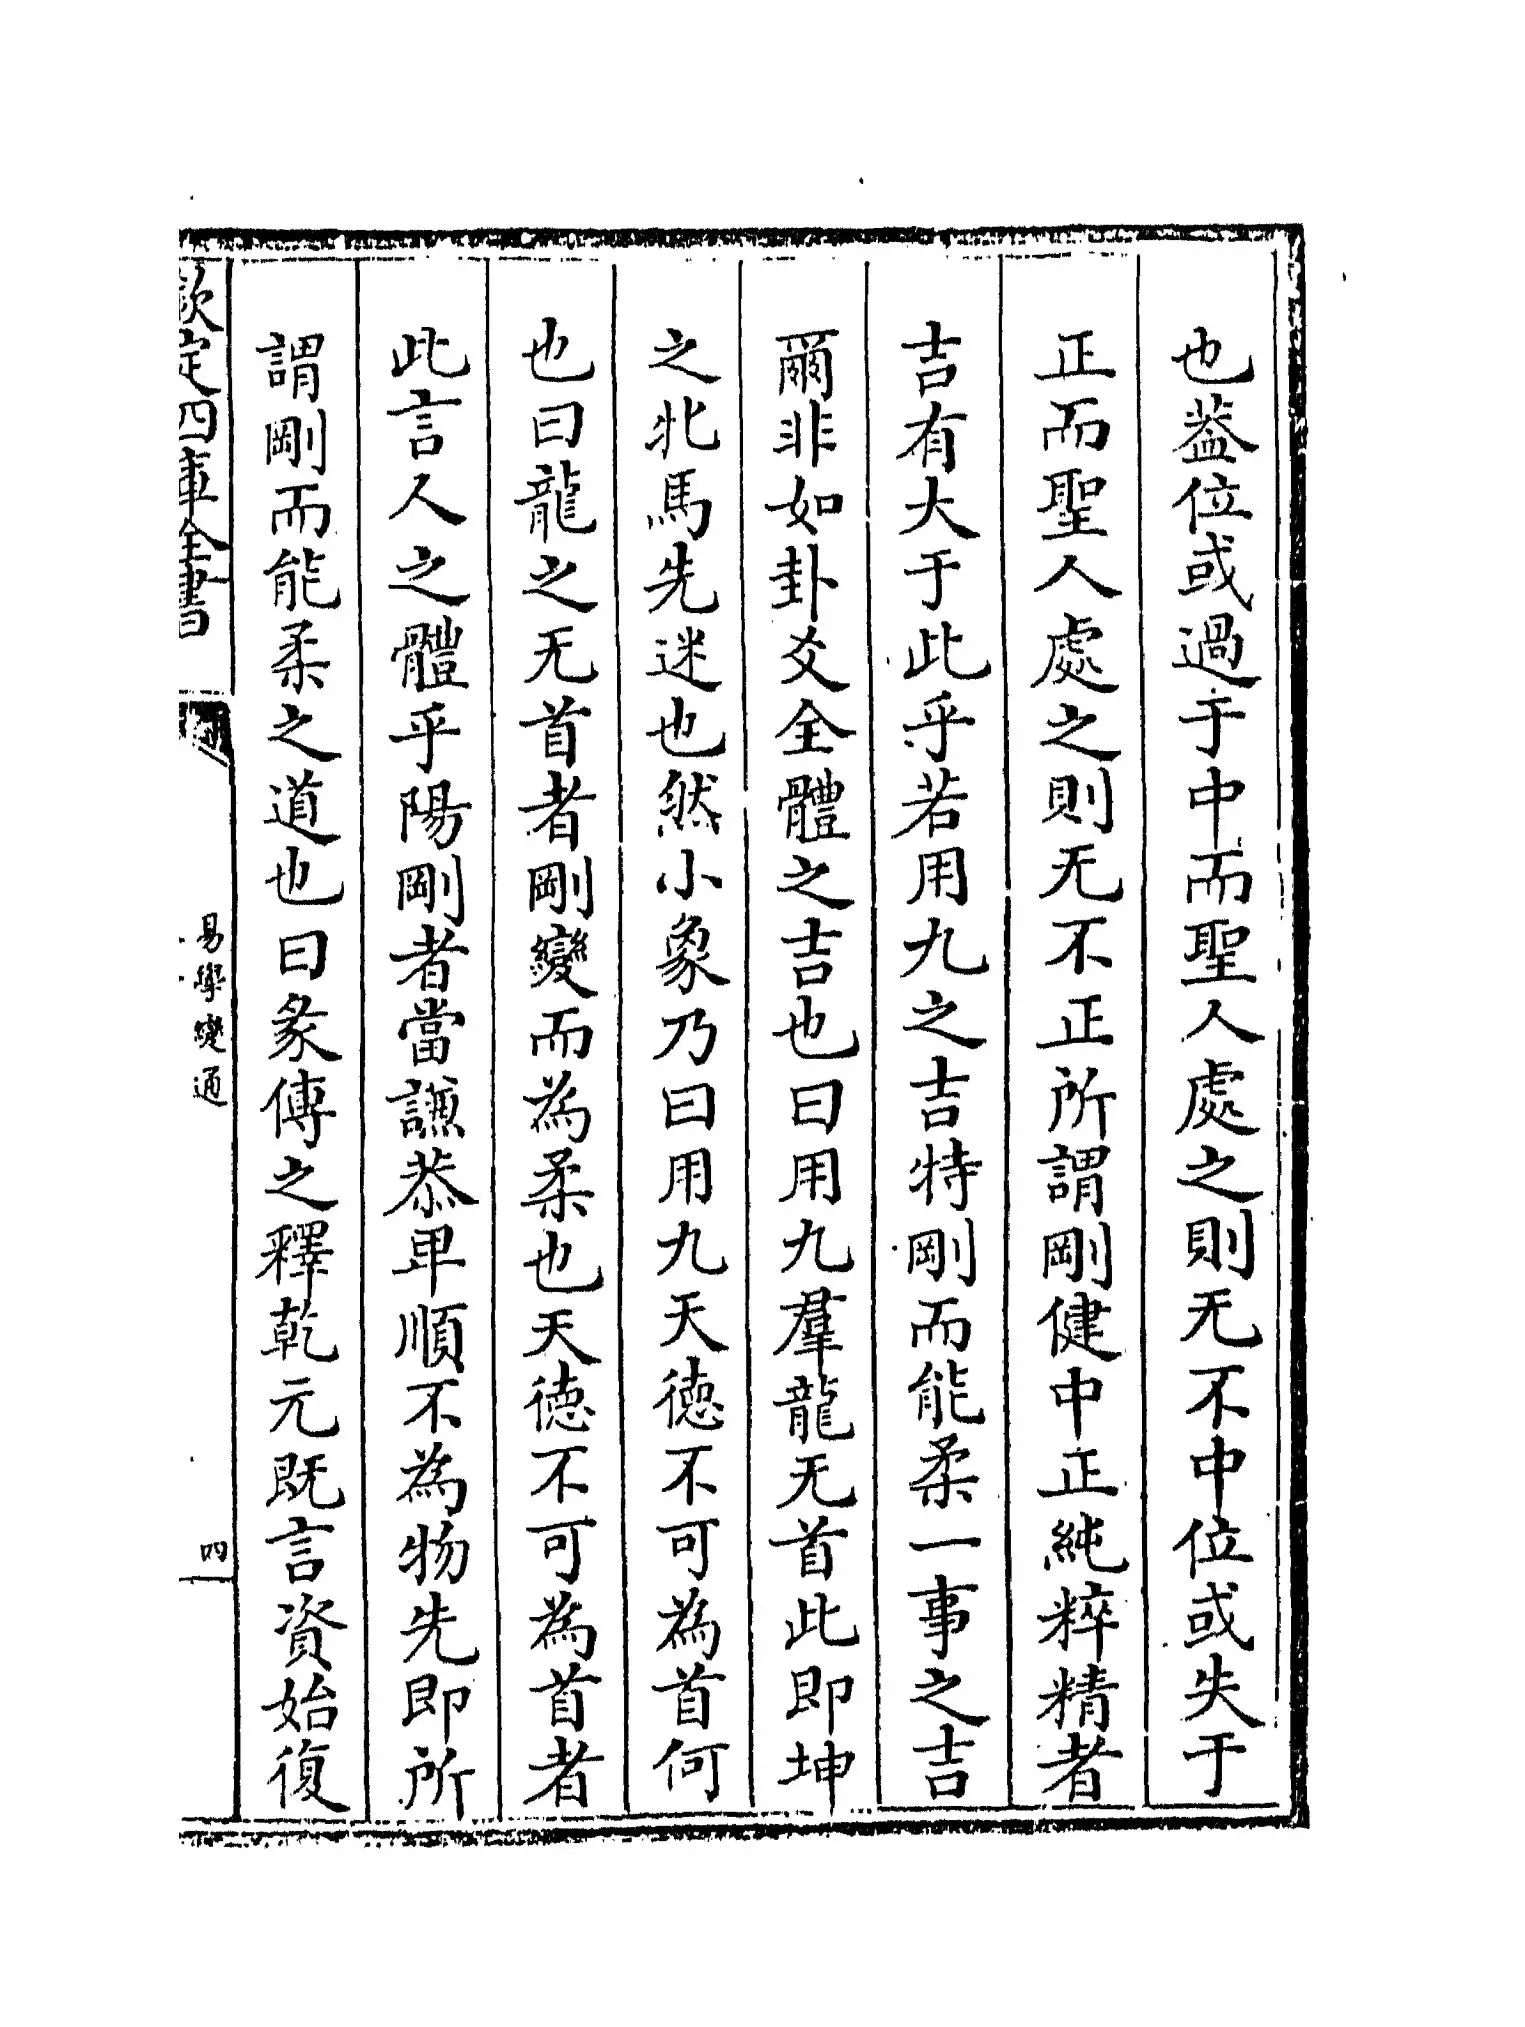 也葢位或過于中而聖人處之則无不中位或失于
正而聖人處之則无不正所謂剛健中正純粹精者
吉有大于此乎若用九之吉特剛而能柔一事之吉
爾非如卦爻全體之吉也曰用九羣龍无首此即坤
之牝馬先迷也然小象乃曰用九天徳不可為首何
也曰龍之无首者剛變而為柔也天徳不可為首者
此言人之體乎陽剛者當謙恭卑順不為物先即所
謂剛而能柔之道也曰彖傳之釋乾元既言資始復
欽定四庫全書
易學變通
四